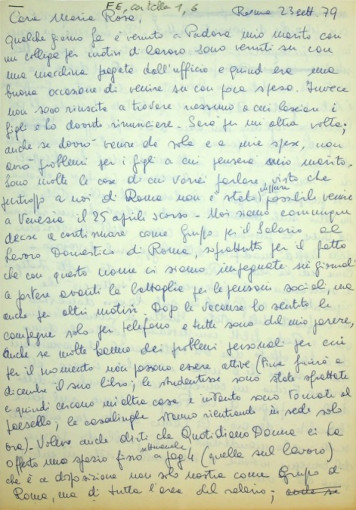 EE, cartella 1, 6
Cara Maria Rosa, Roma 23 sett. 79
Qualche giorno fa è venuto a Padova mio marito con
un collega per motivi di lavoro. Sono venuti su con
una macchina pagata dall'ufficio e quindi era una
buona occasione di venire su con poca spesa. Invece
non sono riuscita a trovare nessuno a cui lasciare i
figli e ho dovuto rinunciare. Sarà per un'altra volta;
anche se dovrò venire da sola e a mie spese, non
avrò problemi per i figli a cui penserà mio marito.
Sono molte le cose di cui vorrei parlare, visto che
purtroppo a noi di Roma non è stato possibile venire
a Venezia il 25 aprile scorso - Noi siamo comunque
decise a continuare come Gruppo per il Salario al
Lavoro Domestico di Roma, soprattutto per il fatto
che con questo nome ci siamo impegnate sui giornali
a portare avanti la battaglia per le pensioni sociali, ma
anche per altri motivi. Dopo le vacanze ho sentito le
compagne solo per telefono e tutte sono del mio parere,
anche se molte hanno dei problemi personali per cui
per il momento non possono essere attive ( finirà a
dicembre il suo libro; le studentesse sono state sfrattate
e quindi cercano un'altra casa e intanto sono tornate al
paesello; le casalinghe stanno rientrando in sede solo
ora). Volevo anche dirti che Quotidiano Donna ci ha
offerto uno spazio fisso settimanale a pag 4 (quella sul lavoro)
che è a disposizione non solo nostra come Gruppo di
Roma, ma di tutta l'area del salario;